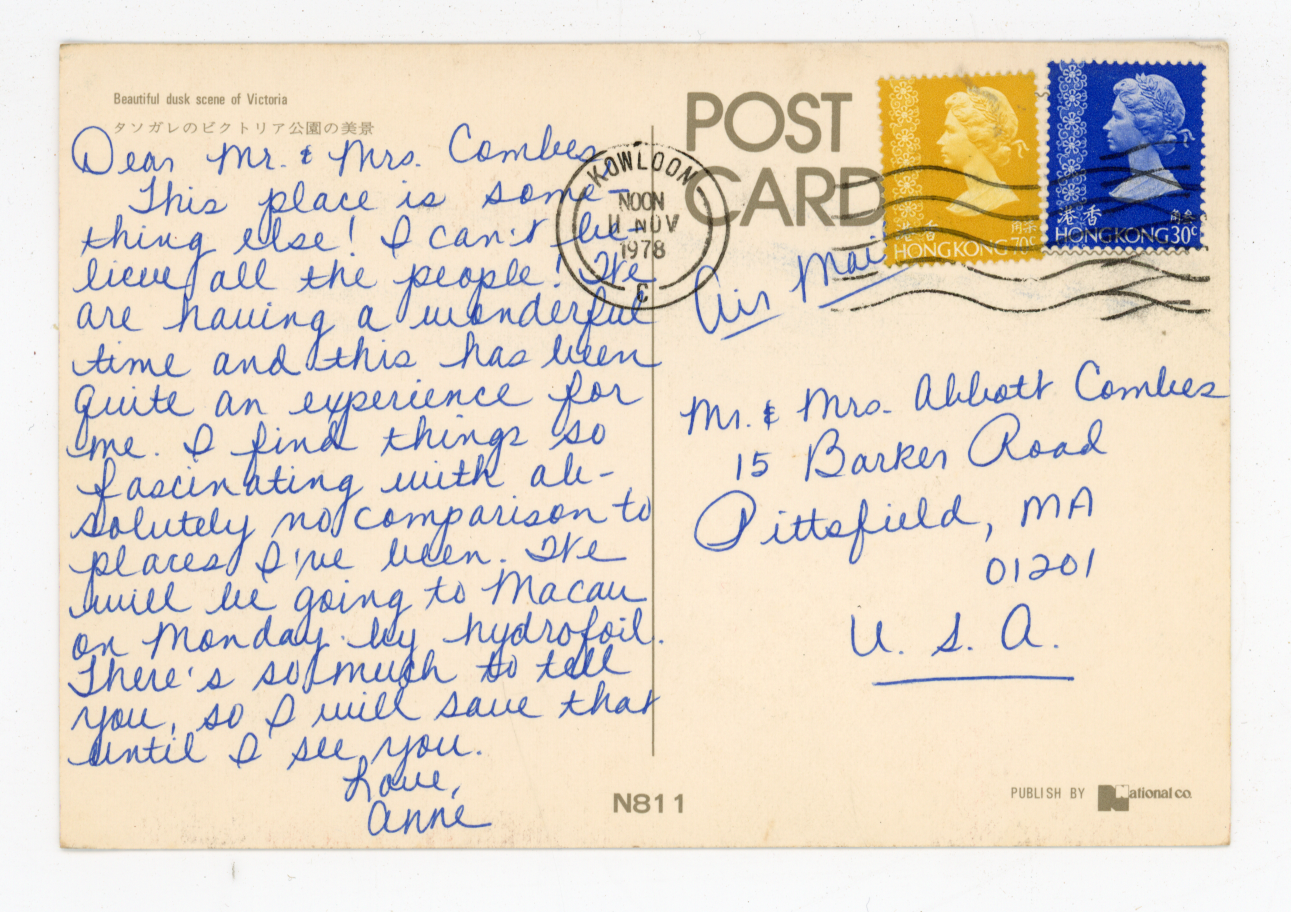 Beautiful dusk scene of Victoria
タソガレのビクトリア公園の美景
Dear Mr. & Mrs. Combes,
This place is some-
thing else! I can't be-
lieve all the people! We
are having a wonderful
time and this has been
quite an experience for
me. I find things so
fascinating with ab-
solutely no comparison to
places I've been. We
will be going to Macau
on Monday by hydrofoil.
There's so much to tell
you, so I will save that
until I see you.
Love,
Anne
POST
CARD
KOWLOON
NOON
11 NOV
1978
C
港香
HONG KONG 70c
港香
HONG KONG 30c
Air Mail
Mr. & Mrs. Abbott Combes
15 Barker Road
Pittsfield, MA
01201
U. S. A.
N811
PUBLISH BY National co.